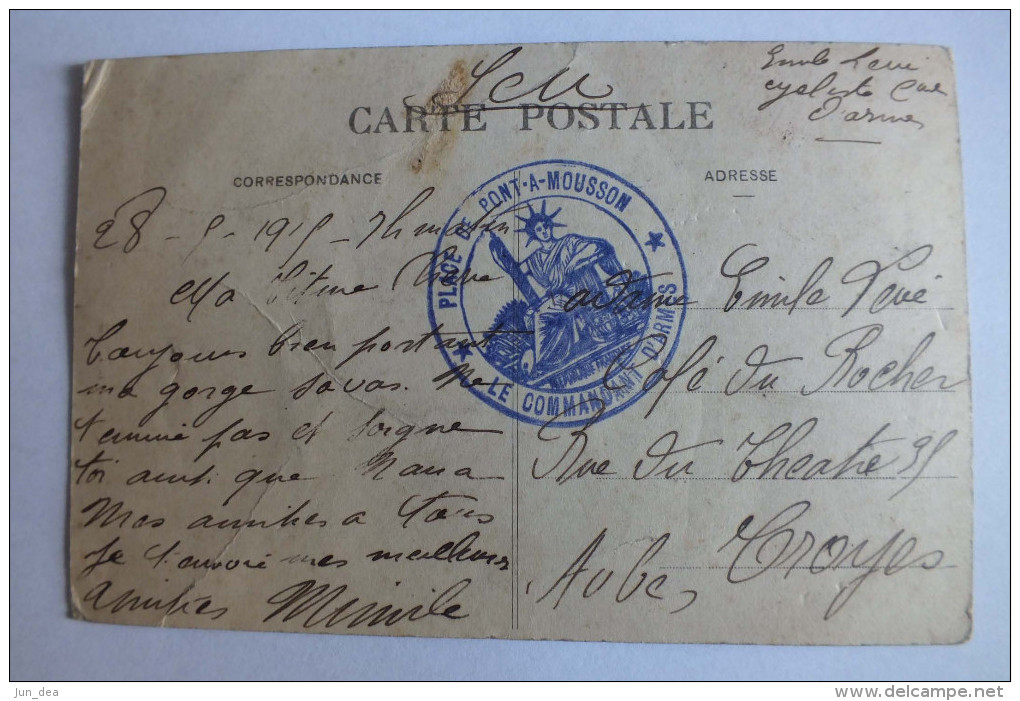 FM
Emile Levi
cycliste
d'armes
CARTE POSTALE
CORRESPONDANCE
ADRESSE
PLACE DE PONT-A-MOUSSON
LE COMMANDANT D'ARMES
REPUBLIQUE FRANÇAISE
28 - 5 - 1915 - 7h matin
Ma petite
Toujours bien portant
ma gorge sa vas. Ne
t'ennuie pas et soigne
toi ainsi que Nana
Mes amities a tous
Je t'envoie mes meilleurs
amities Mimile
Madame Emile Levi
Café du Rocher
Rue du Theatre 35
Troyes
Aube
jun_dea
www.delcampe.net